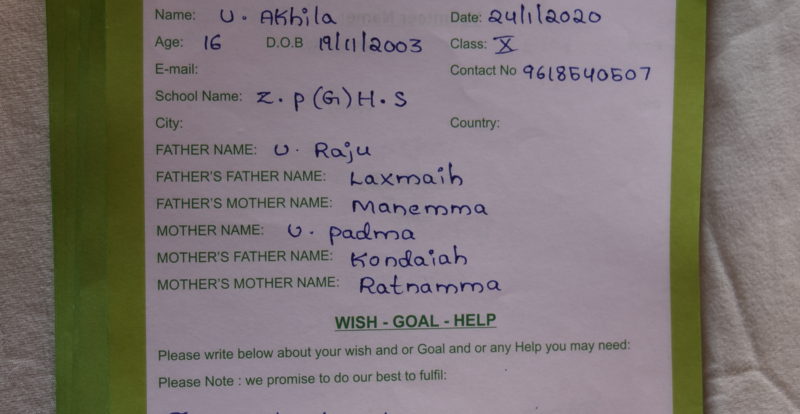 Name: U. Akhila Date: 24/1/2020
Age: 16 D.O.B 19/1/2003 Class: X
E-mail: Contact No 9618540507
School Name: Z.P(G)H.S
City: Country:
FATHER NAME: U. Raju
FATHER'S FATHER NAME: Laxmaih
FATHER'S MOTHER NAME: Manemma
MOTHER NAME: U. padma
MOTHER'S FATHER NAME: Kondaiah
MOTHER'S MOTHER NAME: Ratnamma
WISH - GOAL - HELP
Please write below about your wish and or Goal and or any Help you may need:
Please Note : we promise to do our best to fulfil: